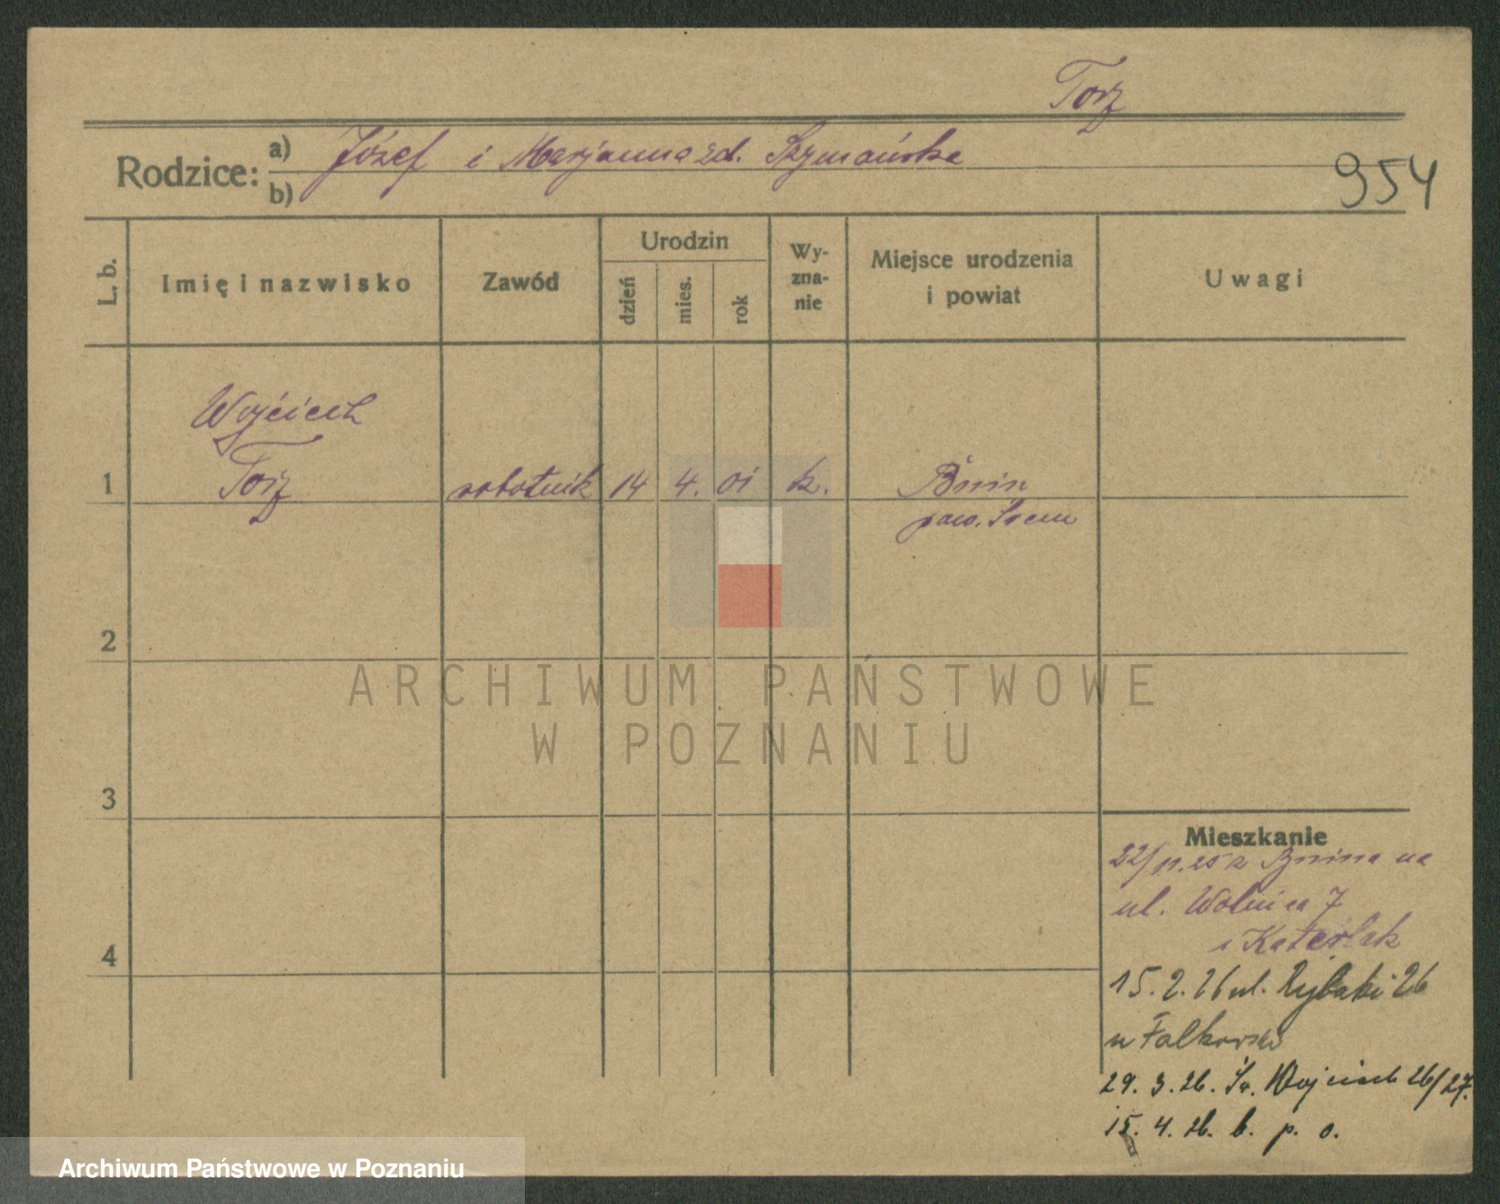 Torz
Rodzice: a) Józef i Marjanna zd. Szymańska
b)
954
L. b.
Imię i nazwisko
Zawód
Urodzin
dzień
mies.
rok
Wy-
zna-
nie
Miejsce urodzenia
i powiat
Uwagi
Wojciech
1 Torz robotnik 14 4. 01 k. Bnin
pow. Śrem
2
ARCHIWUM PAŃSTWOWE
W POZNANIU
3
Mieszkanie
22/11.25 z Bnina na
ul. Wolnica 7
4
15. 2. 26 ul. Rybaki 26
u
29. 3. 26. Św. Wojciech 26/27.
15. 4. 26. b. p. o.
Archiwum Państwowe w Poznaniu